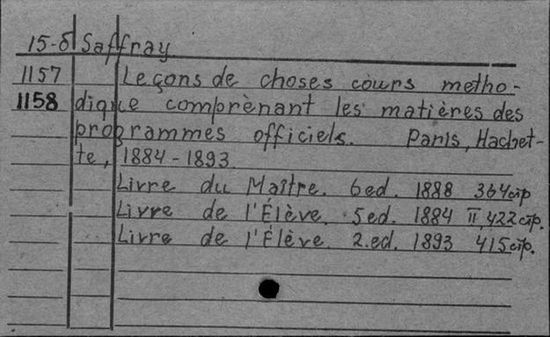 15-б Saffray
1157 Leçons de choses cours metho-
1158 dique comprènant les matières des
programmes officiels. Paris, Hachet-
te, 1884-1893
Livre du Maître. 6ed. 1888 364стр
Livre de l'Élève. 5ed. 1884 II, 422стр.
Livre de l'Élève 2.ed. 1893 415стр.